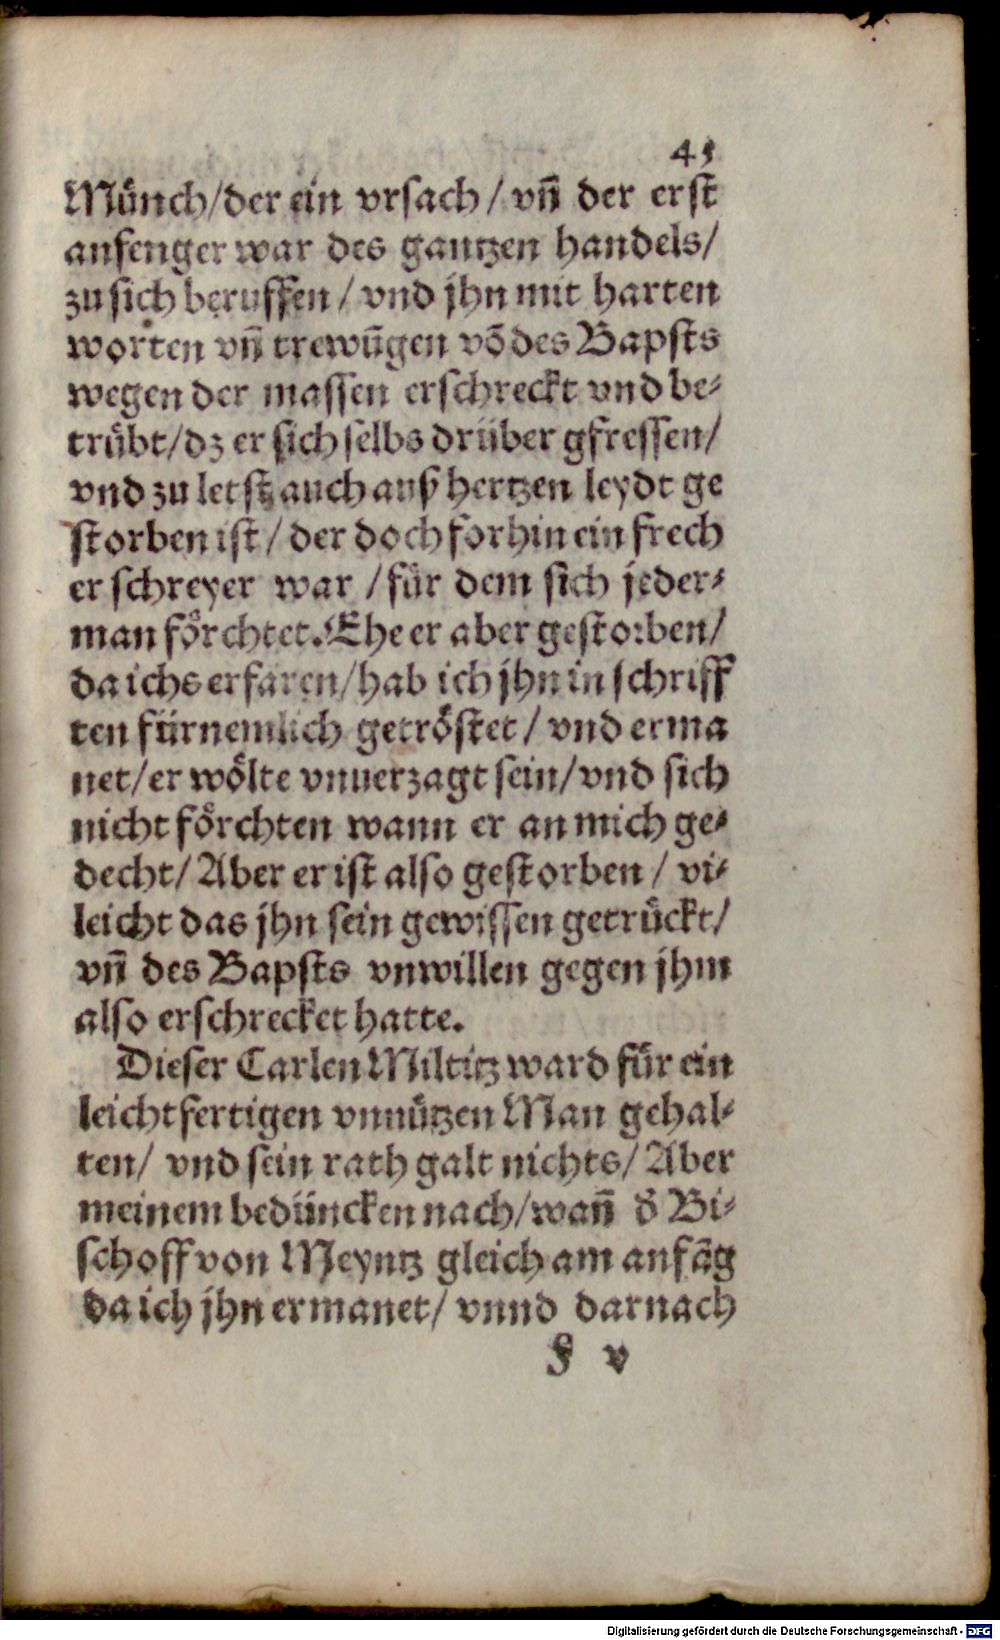 45
Münch/der ein vrsach / vñ der erst
anfenger war des gantzen handels/
zu sich beruffen / vnd jhn mit harten
worten vñ trewũgen võ des Bapsts
wegen der massen erschreckt vnd be⸗
trübt/dz er sich selbs drüber gfressen/
vnd zu letst auch auß hertzen leydt ge
storben ist / der doch forhin ein frech
er schreyer war / für dem sich jeder⸗
man förchtet. Ehe er aber gestorben/
da ichs erfaren/hab ich jhn in schriff
ten fürnemlich getröstet / vnd erma
net/er wölte vnuerzagt sein/vnd sich
nicht förchten wann er an mich ge⸗
decht/ Aber er ist also gestorben / vi⸗
leicht das jhn sein gewissen getrückt/
vñ des Bapsts vnwillen gegen jhm
also erschrecket hatte.
Dieser Carlen Miltitz ward für ein
leichtfertigen vnnützen Man gehal⸗
ten/ vnd sein rath galt nichts/ Aber
meinem bedüncken nach/wañ d̃ Bi⸗
schoff von Meyntz gleich am anfãg
da ich jhn ermanet/ vnnd darnach
F v
Digitalisierung gefördert durch die Deutsche Forschungsgemeinschaft - DFG